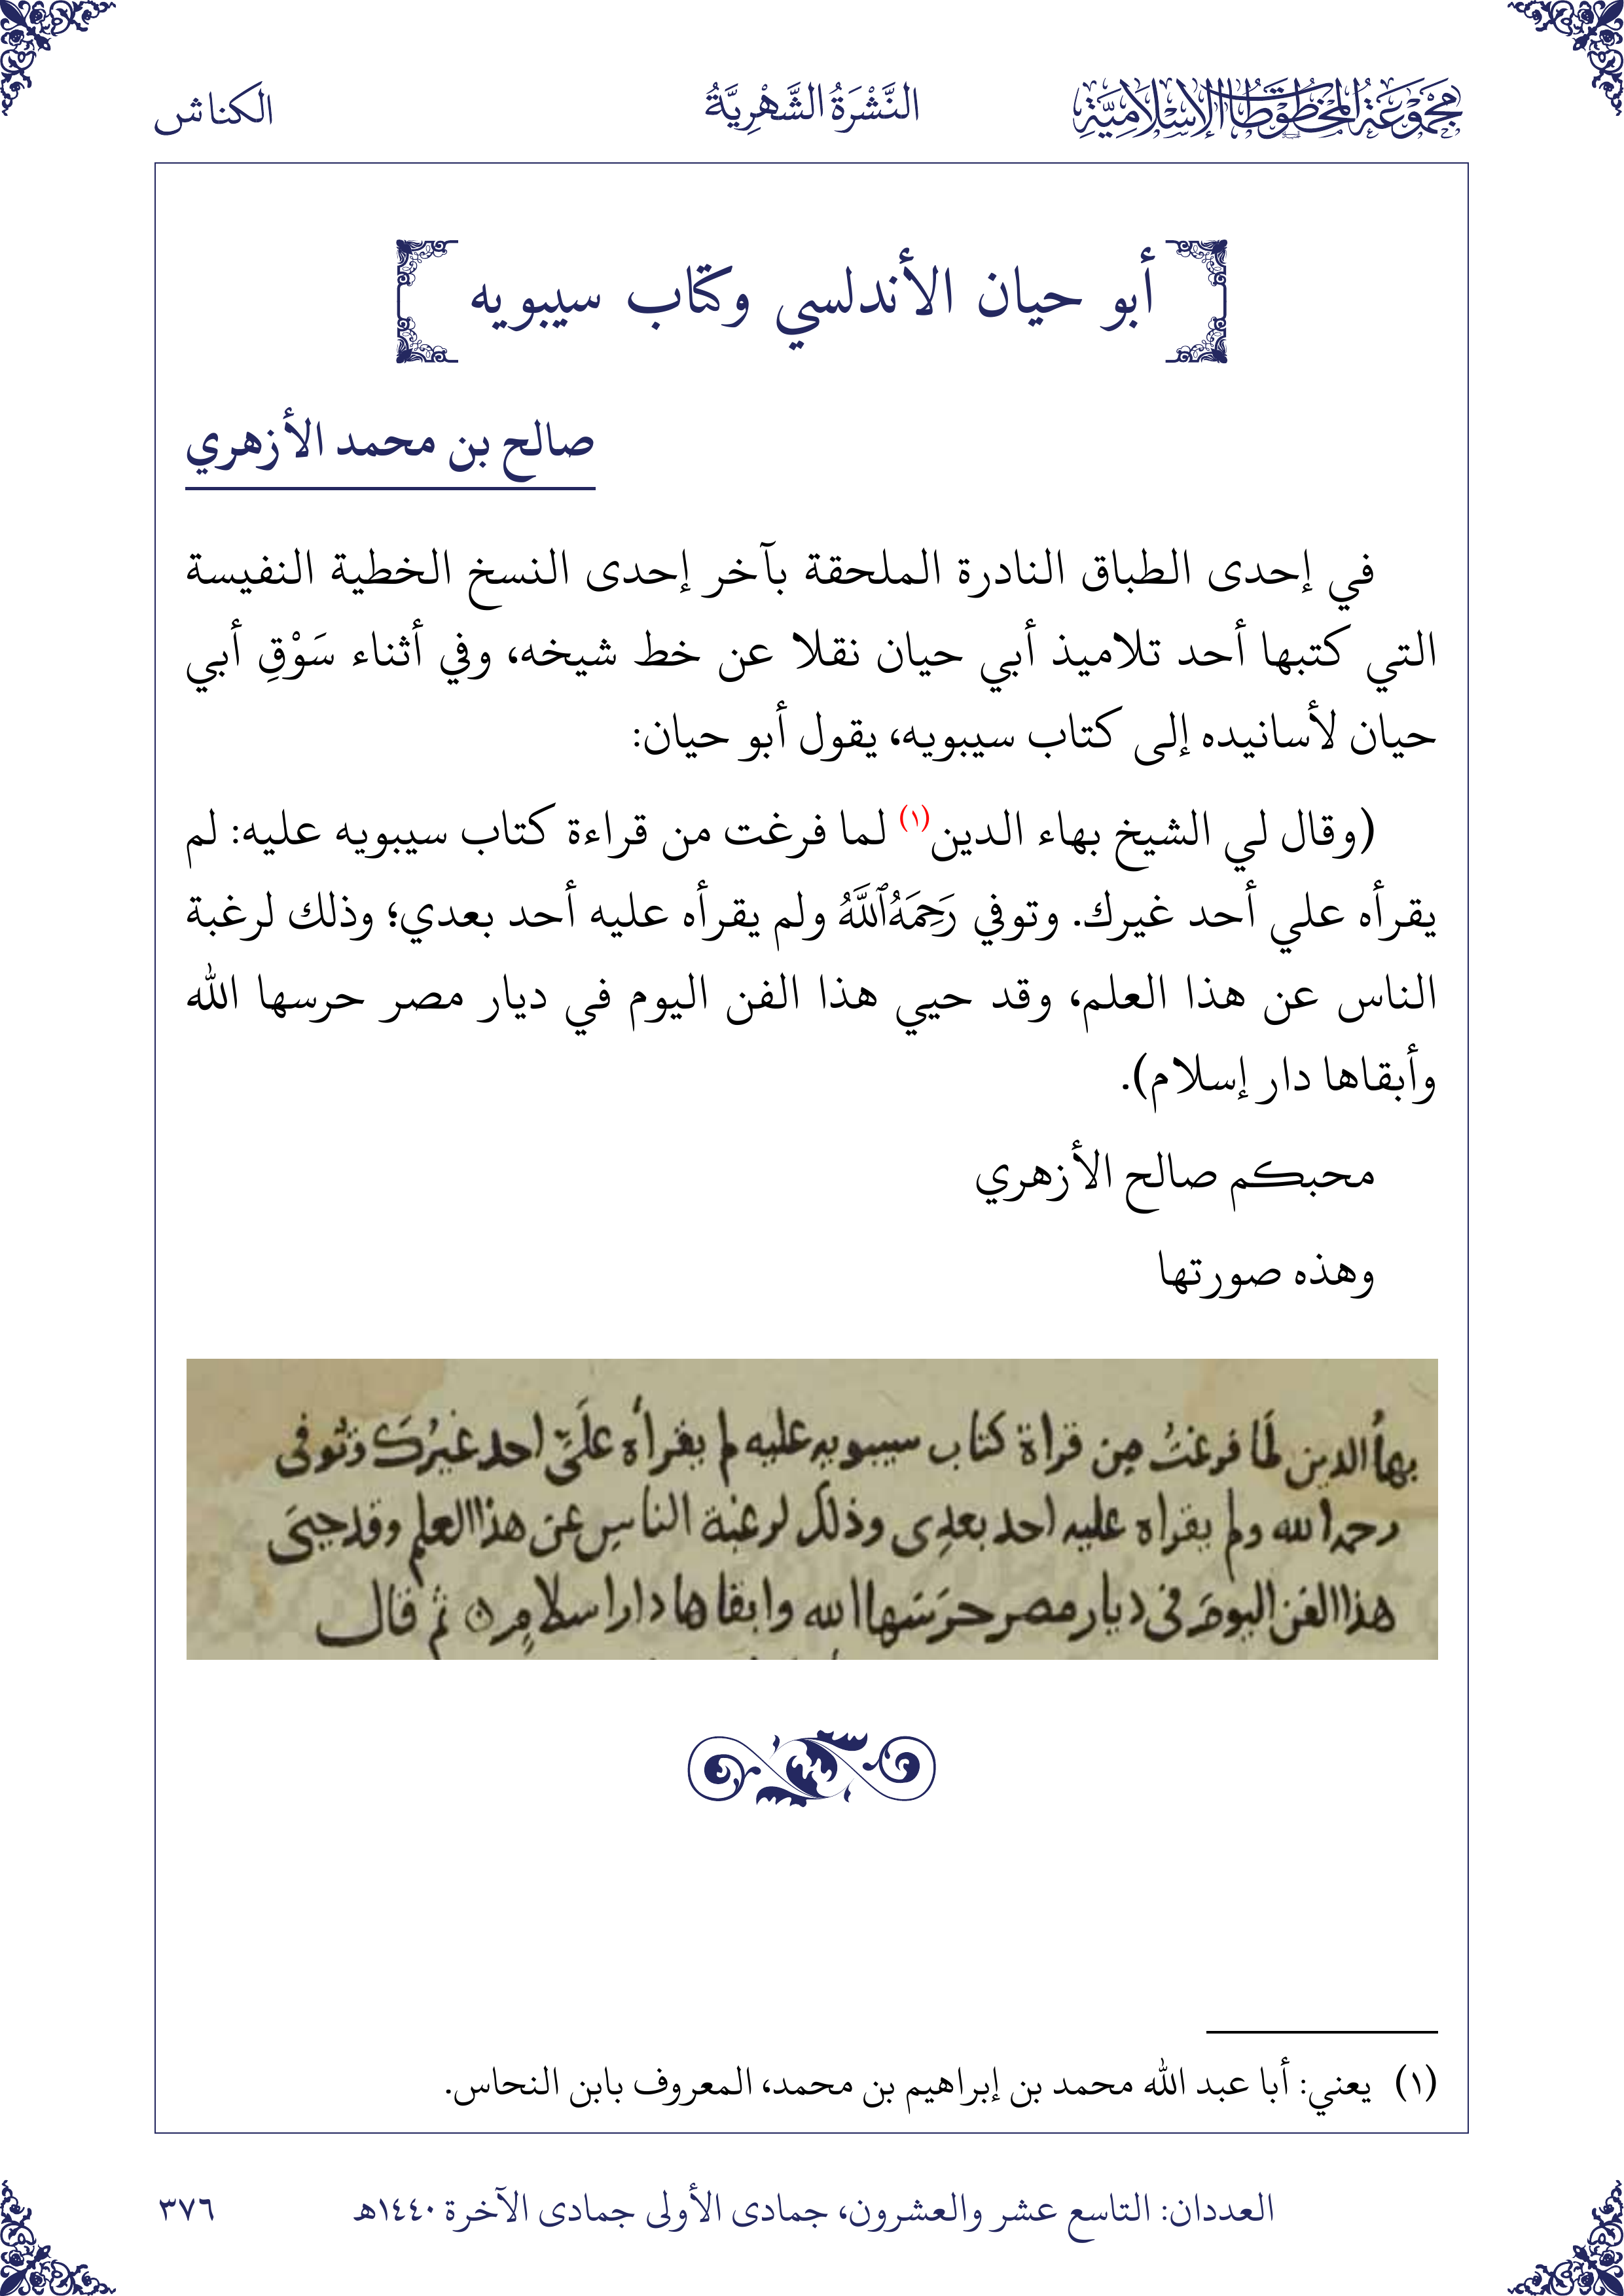 مَجْمُوعَةُ المَخْطُوطَاتِ الإِسْلَامِيَّةِ
النَّشْرَةُ الشَّهْرِيَّةُ
الكناش
أبو حيان الأندلسي وكتاب سيبويه
صالح بن محمد الأزهري
في إحدى الطباق النادرة الملحقة بآخر إحدى النسخ الخطية النفيسة
التي كتبها أحد تلاميذ أبي حيان نقلا عن خط شيخه، وفي أثناء سَوْقِ أبي
حيان لأسانيده إلى كتاب سيبويه، يقول أبو حيان:
(وقال لي الشيخ بهاء الدين(١) لما فرغت من قراءة كتاب سيبويه عليه: لم
يقرأه علي أحد غيرك. وتوفي رَحِمَهُ ٱللَّهُ ولم يقرأه عليه أحد بعدي؛ وذلك لرغبة
الناس عن هذا العلم، وقد حيي هذا الفن اليوم في ديار مصر حرسها الله
وأبقاها دار إسلام).
محبكم صالح الأزهري
وهذه صورتها
بهاُ الدين لمَّا فرغتُ مِن قراة كتاب سيبويه عليه لم يقرأه علَيَّ احد غيرُكَ وتوفى
رحمه الله ولم يقراه عليه احد بعدِى وذلك لرغبة الناسِ عن هذا العلم وقد حيىَ
هذا الفن اليومَ فى ديار مصر حرَسَها الله وابقاها دار اسلامٍ ثم قال
(١) يعني: أبا عبد الله محمد بن إبراهيم بن محمد، المعروف بابن النحاس.
العددان: التاسع عشر والعشرون، جمادى الأولى جمادى الآخرة ١٤٤٠هـ
٣٧٦